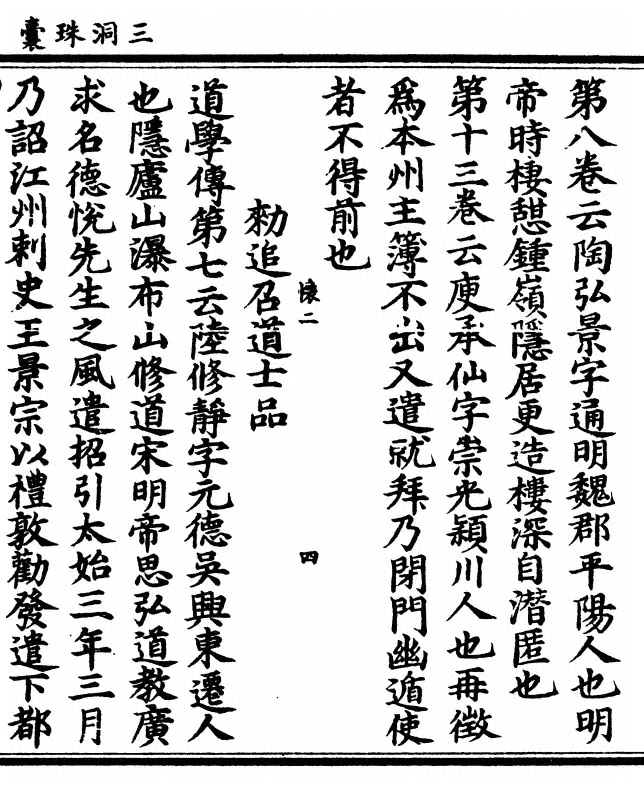 三洞珠囊
第八卷云陶弘景字通明魏郡平陽人也明
帝時棲憇鍾嶺隱居更造樓深自潛匿也
第十三卷云庾承仙字崇光潁川人也再徵
爲本州主簿不出又遣就拜乃閉門幽遁使
者不得前也
懷二
四
勑追召道士品
道學傳第七云陸修靜字元德吳興東遷人
也隱廬山瀑布山修道宋明帝思弘道教廣
求名德悅先生之風遣招引太始三年三月
乃詔江州刺史王景宗以禮敦勸發遣下都